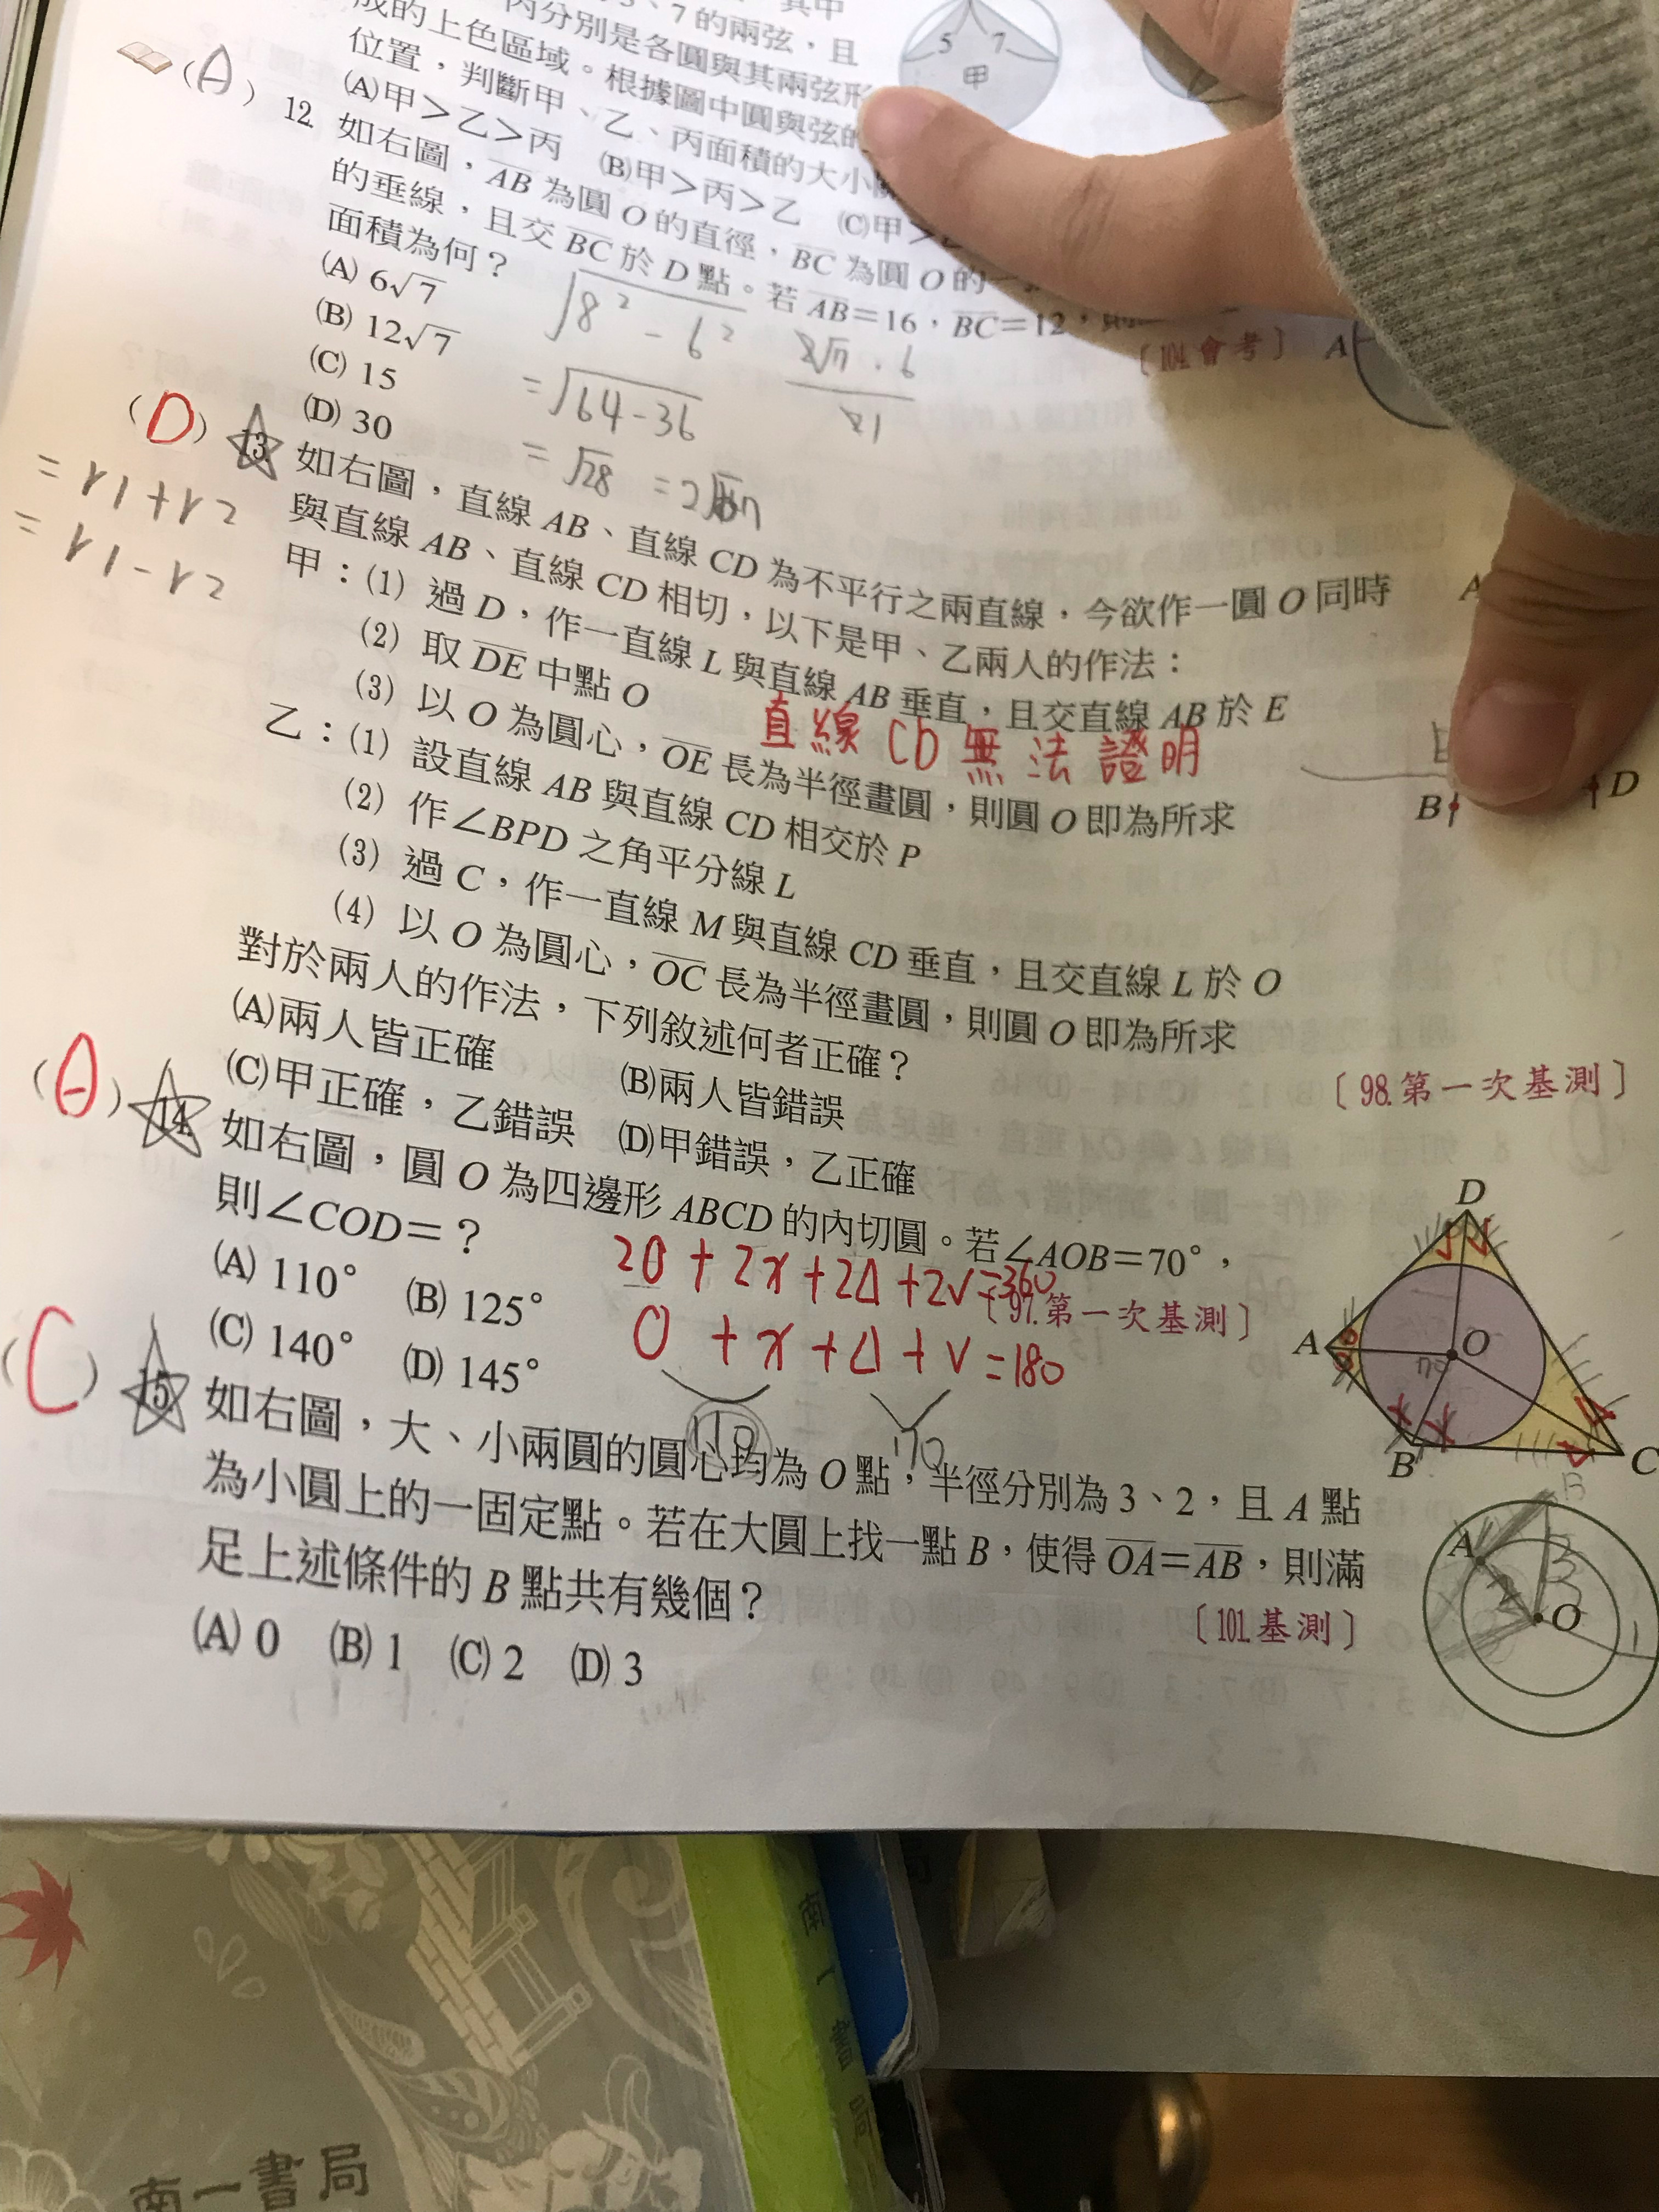 、7 的兩弦，且
丙分別是各圓與其兩弦形
成的上色區域。根據圖中圓與弦的
位置，判斷甲、乙、丙面積的大小
(A)甲＞乙＞丙 (B)甲＞丙＞乙 (C)甲＞
5 7
甲
(A) 12. 如右圖，AB 為圓 O 的直徑，BC 為圓 O 的一
的垂線，且交 BC 於 D 點。若 AB＝16，BC＝12，則
面積為何？
〔104.會考〕
A
(A) 6√7
(B) 12√7
(C) 15
(D) 30
√8² - 6²
= √64-36
= √28 = 2
(D) 13. 如右圖，直線 AB、直線 CD 為不平行之兩直線，今欲作一圓 O 同時
與直線 AB、直線 CD 相切，以下是甲、乙兩人的作法：
= r1+r2
= r1-r2
甲：(1) 過 D，作一直線 L 與直線 AB 垂直，且交直線 AB 於 E
(2) 取 DE 中點 O
直線 CD 無法證明
(3) 以 O 為圓心，OE 長為半徑畫圓，則圓 O 即為所求
乙：(1) 設直線 AB 與直線 CD 相交於 P
(2) 作∠BPD 之角平分線 L
(3) 過 C，作一直線 M 與直線 CD 垂直，且交直線 L 於 O
(4) 以 O 為圓心，OC 長為半徑畫圓，則圓 O 即為所求
對於兩人的作法，下列敘述何者正確？
〔98.第一次基測〕
(A)兩人皆正確 (B)兩人皆錯誤
(C)甲正確，乙錯誤 (D)甲錯誤，乙正確
B D
(A) 14. 如右圖，圓 O 為四邊形 ABCD 的內切圓。若∠AOB＝70°，
則∠COD＝？
〔97.第一次基測〕
(A) 110° (B) 125°
(C) 140° (D) 145°
2O + 2x + 2Δ + 2v = 360
O + x + Δ + v = 180
110
D
A
O
70
B
C
(C) 15. 如右圖，大、小兩圓的圓心均為 O 點，半徑分別為 3、2，且 A 點
為小圓上的一固定點。若在大圓上找一點 B，使得 OA＝AB，則滿
足上述條件的 B 點共有幾個？
〔101.基測〕
(A) 0 (B) 1 (C) 2 (D) 3
B
A
3
2
O
1
南一書局
南一書局